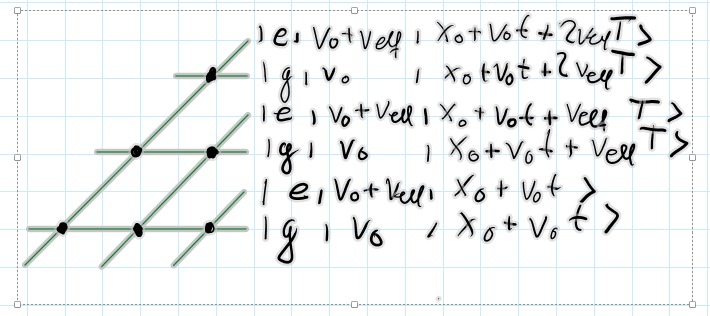 | e, V₀+Veff, X₀+V₀t+2VeffT>
| g, V₀, X₀+V₀t+2VeffT>
| e, V₀+Veff, X₀+V₀t+VeffT>
| g, V₀, X₀+V₀t+VeffT>
| e, V₀+Veff, X₀+V₀t>
| g, V₀, X₀+V₀t>